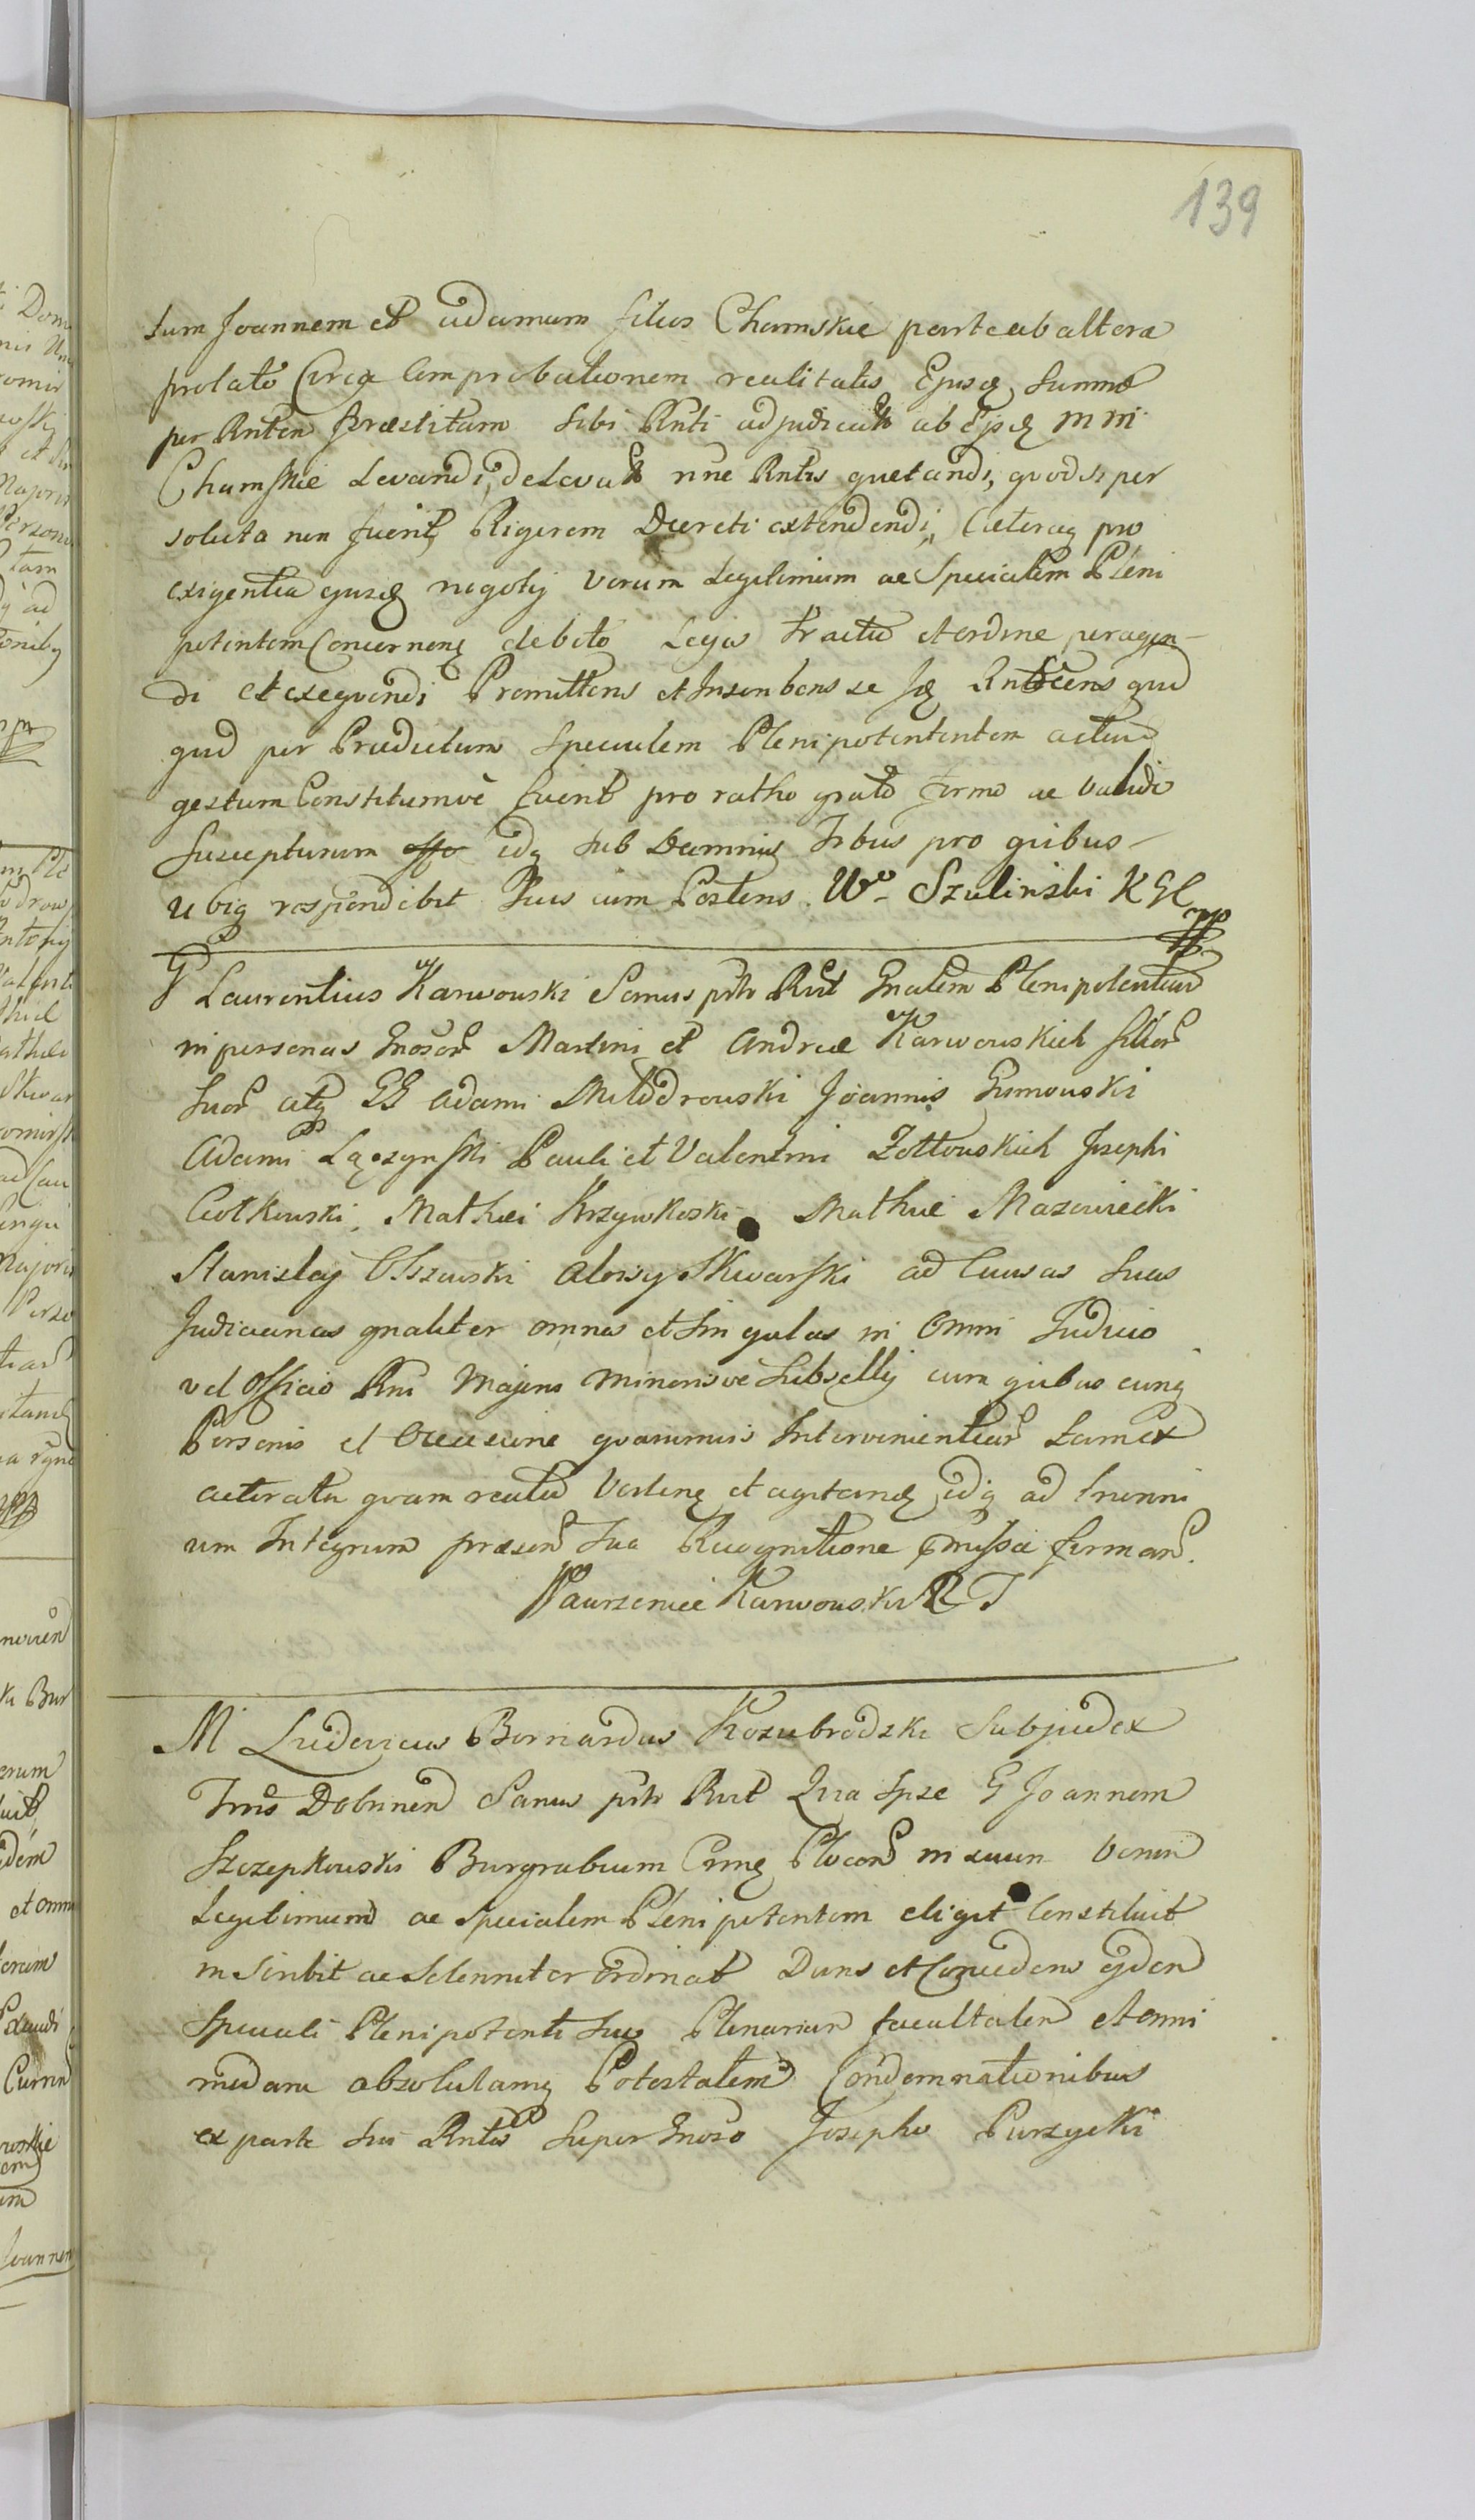 139
tum Joannem et Adamum filios Chamskie parte ab altera
prolato Circa Comprobationem realitatis Ejusq Summæ
per Rntem Præstitam Sibi Rnti adjudicat ab Ejsd M M
Chamskie Levandi, de Levat nne Rntis quetandi, quod si per
soluta non fuerit, Rigorem Decreti extendendi, Cæteraq pro
exigentia ejusd negotij Verum Legitimum ac Specialem Pleni
potentem Concernenq debito Legis Tractu et ordine peragen-
di et exequendi Promittens et Inscribens se Id Rntscens quid
quid per Prædictum Specialem Plenipotententem actum
gestum Constitumve fuerit pro ratho grato firmo ac valido
Suscepturum idq Sub Damnis Trbus pro quibus-
ubiq respondebit Suis cum Postens. Wo. Szuliński K G C
mpp
G Laurentius Karwouski Sanus prtr Rcit Gnalem Plenipotentiam
in personas Gnosor Martini et Andreæ Karwouskich filior
Suor atq GG Adami Milodrouski Joannis Gumouski
Adami Łączynski Pauli et Valentini Zołtouskich Josephi
Ciołkouski, Mathæi Krzywkoski Mathiæ Mazowiecki
Stanislaj Olszewski Aloisy Skwarski ad Causas Suas
Judiciarias gnaliter omnes et Singulas in Omni Judicio
vel Officio Rni Majoris Minorisve Subsellij cum quibus cunq
Personis et Occasione quavimis Intervenientiar tam ex
actoratu quam reatu Vertenq et agitand idq ad Trienni
um Integrum præsen Sua Recognitione missa firman.
Wawrzeniec Karwouski R T
M Ludovicus Bernardus Kozubrodzki Subjudex
Trrs Dobrinen Sanus prtr Rcit Quia Ipse G Joannem
Szczepkouski Burgrabium Crnq Plocen in suum Verum
Legitimum ac Specialem Plenipotentem eligit Constituit
inscribit ac Solenniter Ordinat Dans et Concedens ejdem
Speciali Plenipotenti Suo Plenariam facultatem et omni
modam absolutamq Potestatem Condemnationibus
ex parte Sui Rntis Super Gnoso Josepho Purzycki